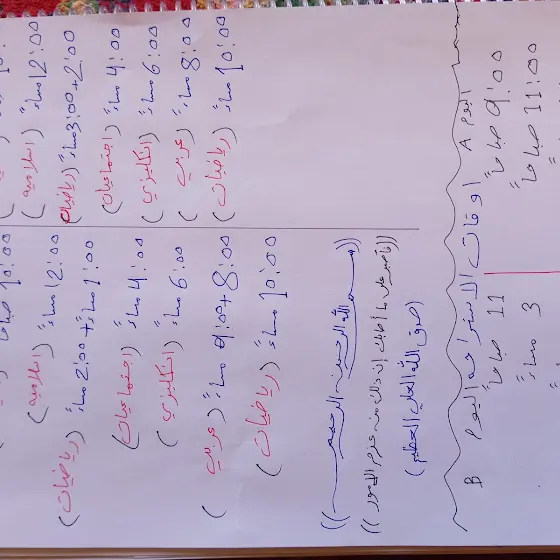 12:00 مساءً (اسلاميه)
2:00+3:00 مساءً (رياضيات)
4:00 مساءً (اجتماعيات)
6:00 مساءً (انكليزي)
8:00 مساءً (عربي)
10:00 مساءً (رياضيات)
10:00 صباحاً
12:00 مساءً (اسلاميه)
1:00 + 2:00 مساءً (رياضيات)
4:00 مساءً (اجتماعيات)
6:00 مساءً (انكليزي)
8:00+9:00 مساءً (عربي)
10:00 مساءً (رياضيات)
((بسم الله الرحمن الرحيم))
((فاصبر على ما أصابك إن ذلك من عزم الامور))
(صدق الله العلي العظيم)
اليوم A اوقات الاستراحه اليوم B
9:00 صباحاً 11 صباحاً
11:00 صباحاً 3 مساءً